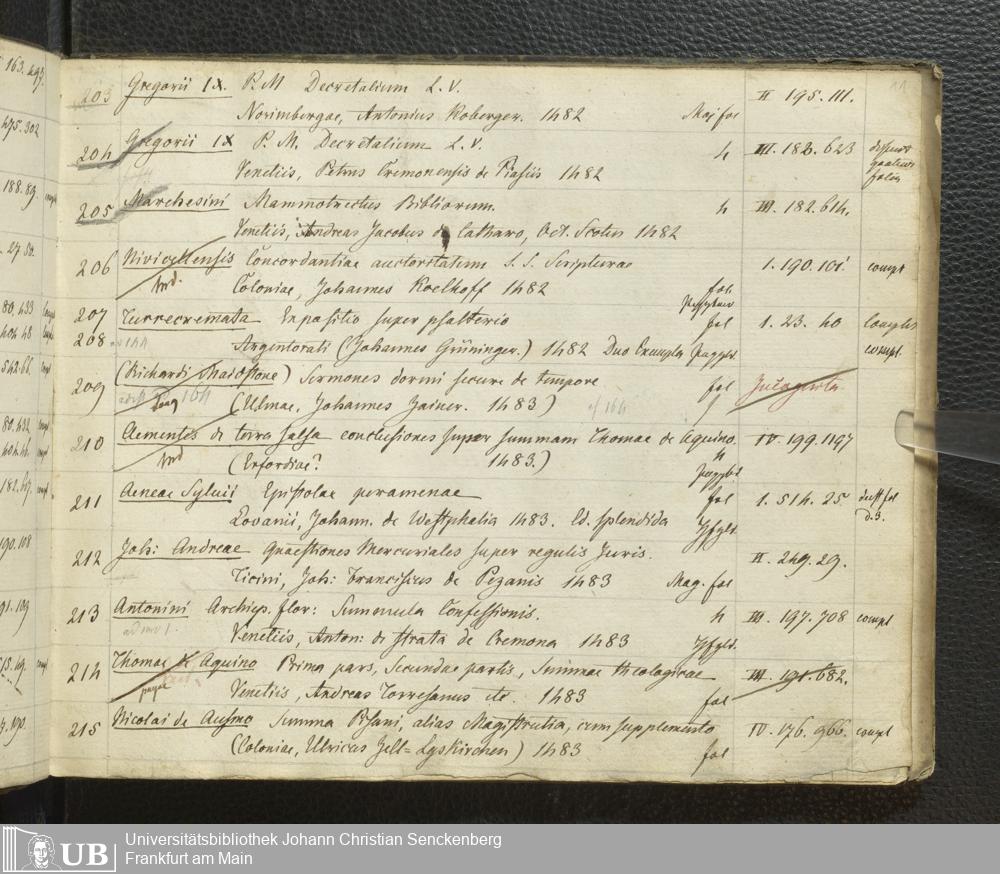 11
203 Gregorii IX. P. M Decretalium L. V. II 195. 111.
Norimbergae, Antonius Koberger. 1482 Maj fol
204 Gregorii IX P. M. Decretalium L. V. 4 III. 182. 623
Venetiis, Petrus Cremonensis de Plasiis 1482
205 Marchesini Mammotrectus Bibliorum. 4 III. 182. 614.
Venetiis, Andreas Jacobus de Catharo, Oct. Scotus 1482
206 Nivicellensis Concordantiae auctoritatum S. S. Scripturae 1. 190. 101 compl
Coloniae, Johannes Koelhoff 1482 fol.
207 Turrecremata Expositio super psalterio fol 1. 23. 40
208 Argentorati (Johannes Grüninger.) 1482 Duo Exempla compl.
209 (Richardi Maidstone) Sermones dormi secure de tempore fol
164 (Ulmae, Johannes Zainer. 1483) cf 164
210 Clementis de terra salsa conclusiones super summam Thomae de Aquino. IV. 199. 1197
(Erfordiae? 1483.) 4
211 Aeneae Sylvii Epistolae peramenae fol 1. 514. 25.
Lovanii, Johann. de Westphalia 1483. Ed. splendida
212 Joh: Andreae Quaestiones Mercuriales super regulis Juris. II. 249. 29.
Ticini, Joh: Franciscus de Pezanis 1483 Mag. fol
213 Antonini Archiep. flor: Summula Confessionis. 4 III. 197. 708 compl
Venetiis, Anton: de Strata de Cremona 1483
214 Thomae de Aquino Prima pars, Secundae partis, Summae theologicae III. 191. 682.
Venetiis, Andreas Torresanus etc. 1483 fol
215 Nicolai de Ausmo Summa Pisani, alias Magistrutia, cum supplemento IV. 176. 966. compl
(Coloniae, Ulricus Zell=Lyskirchen) 1483 fol
UB Universitätsbibliothek Johann Christian Senckenberg
Frankfurt am Main